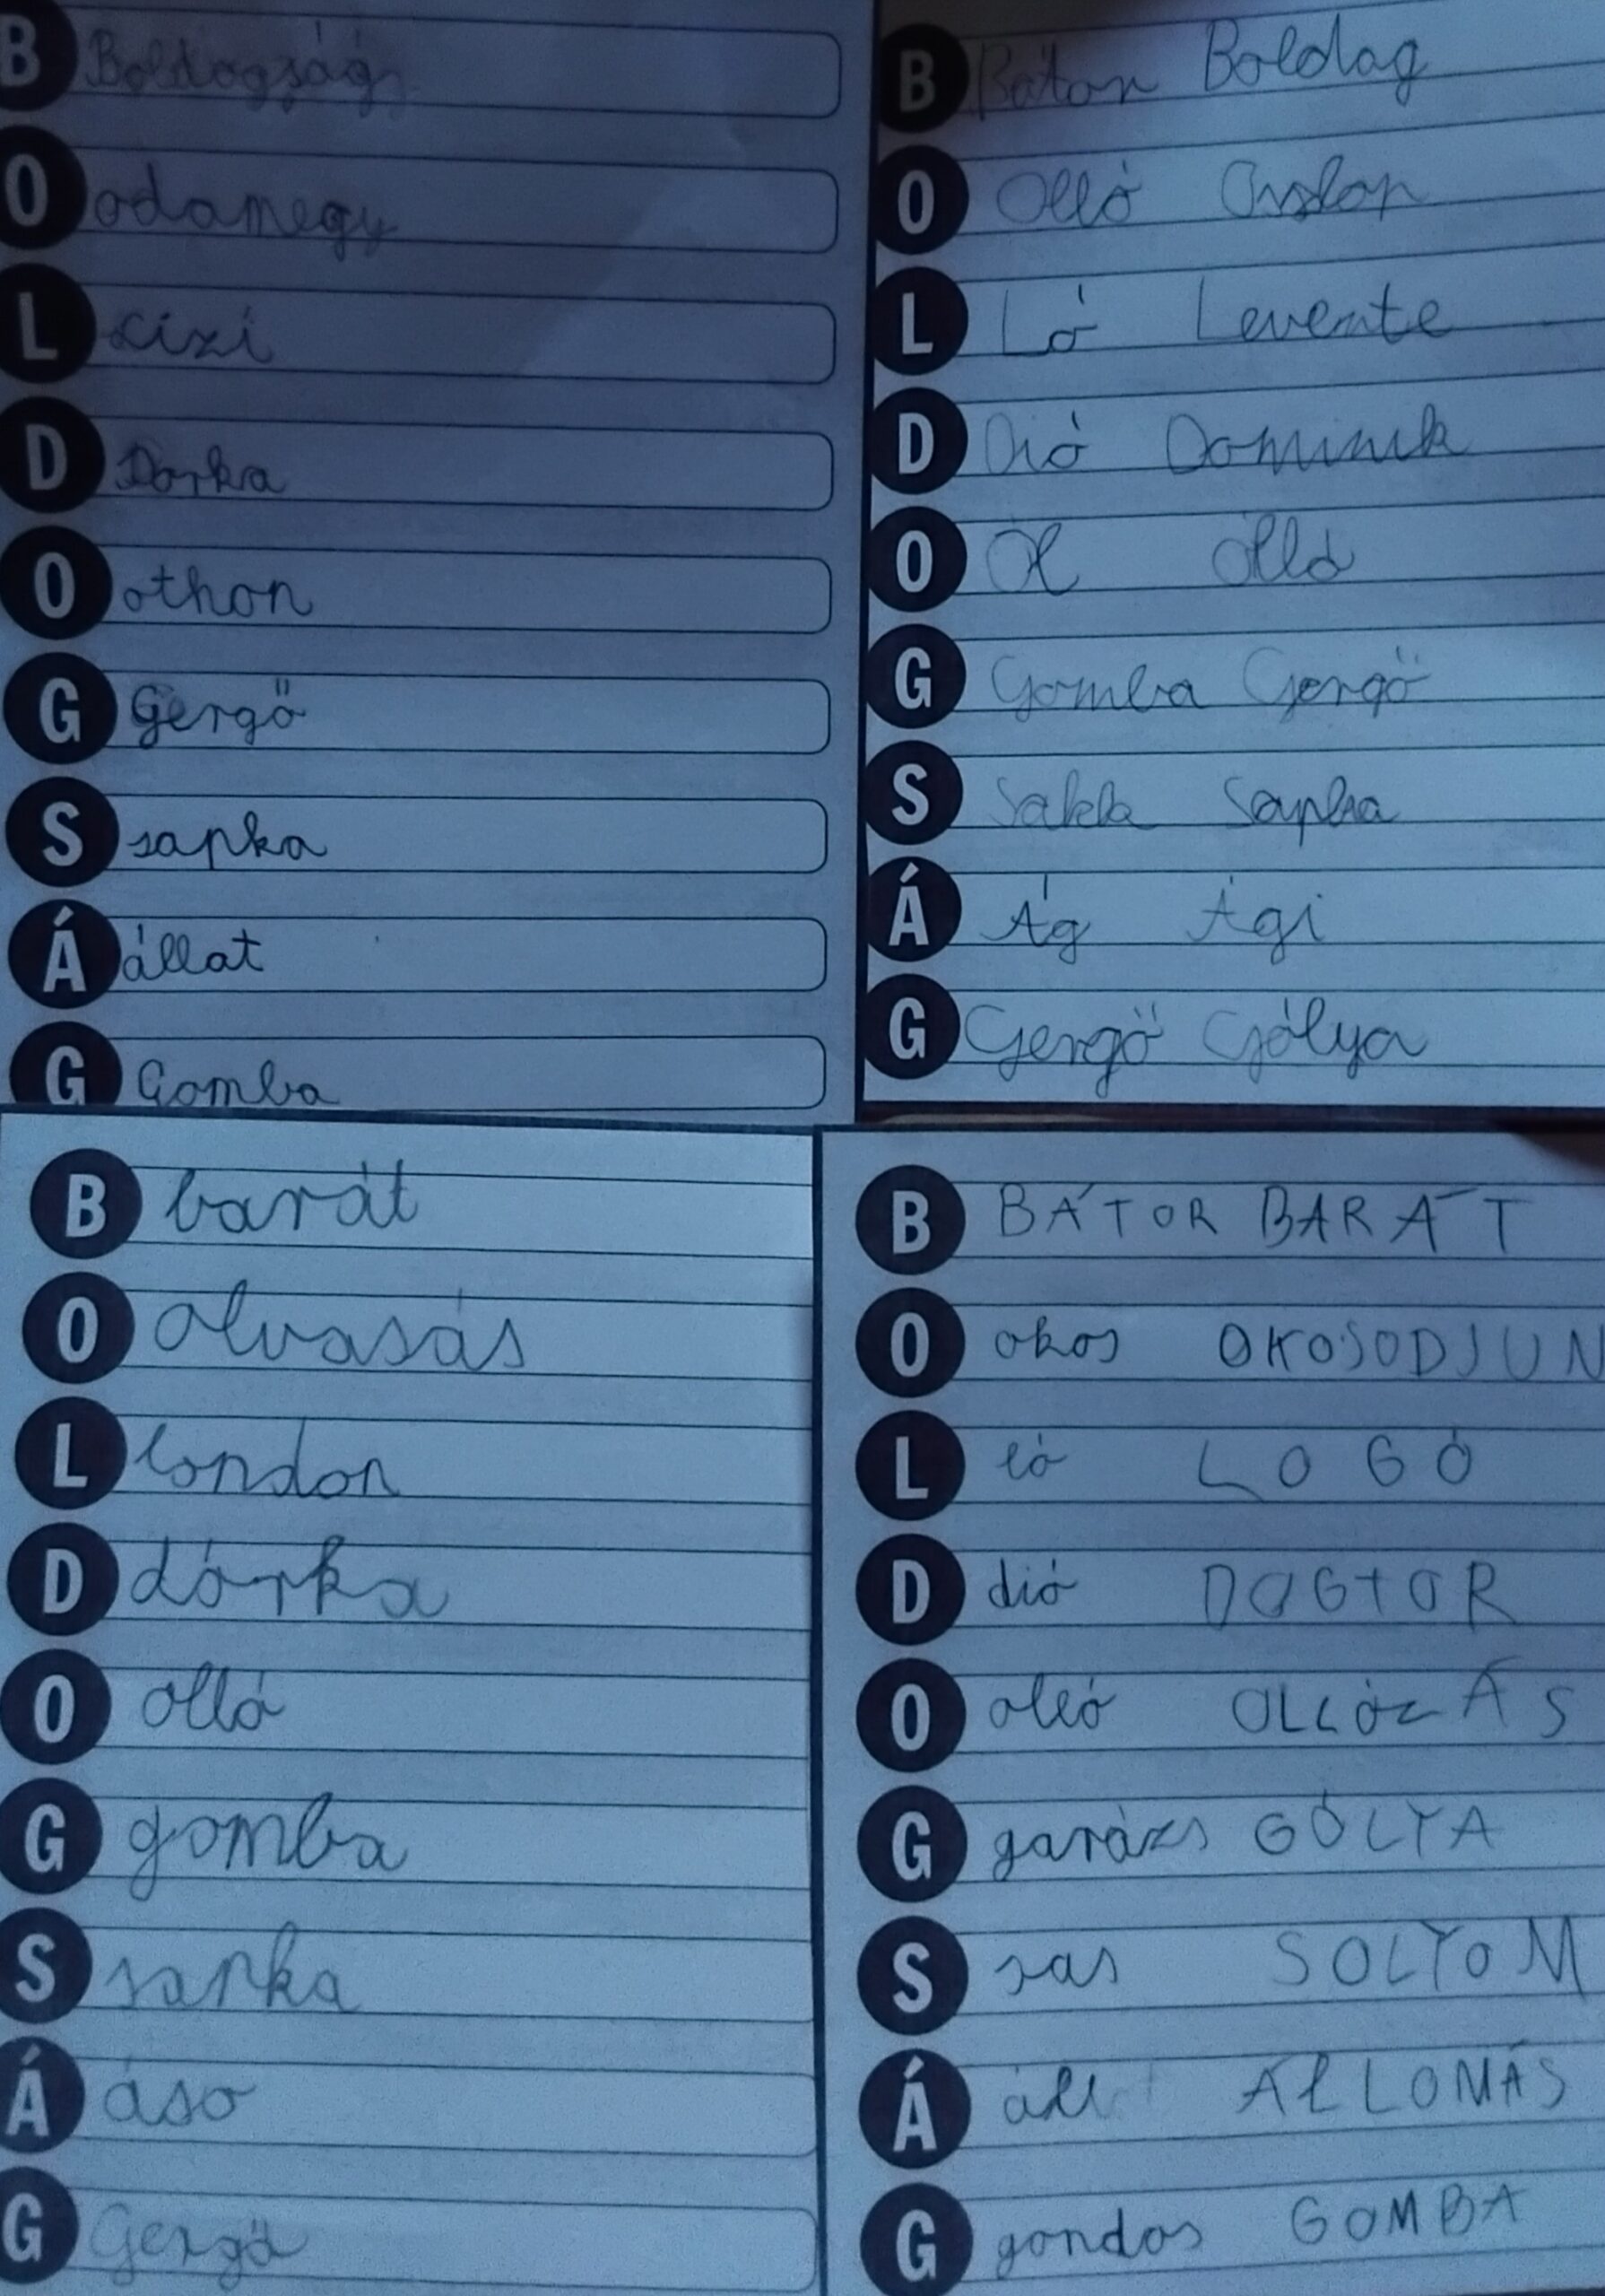 B Boldogság
O odamegy
L Lizi
D Dorka
O othon
G Gergő
S sapka
Á állat
G Gomba
B Bátor Boldog
O Olló Oszlop
L Ló Levente
D Dió Dominik
O Ól olló
G Gomba Gergő
S Sakk Sapka
Á Ág Ági
G Gergő Gólya
B barát
O olvasás
L london
D dórka
O olló
G gomba
S sapka
Á áso
G Gergő
B BÁTOR BARÁT
O okos OKOSODJUN
L ló LOGÓ
D dió DOGTOR
O olló OLLÓZÁS
G garázs GÓLYA
S sas SOLYOM
Á áll ÁLLOMÁS
G gondos GOMBA